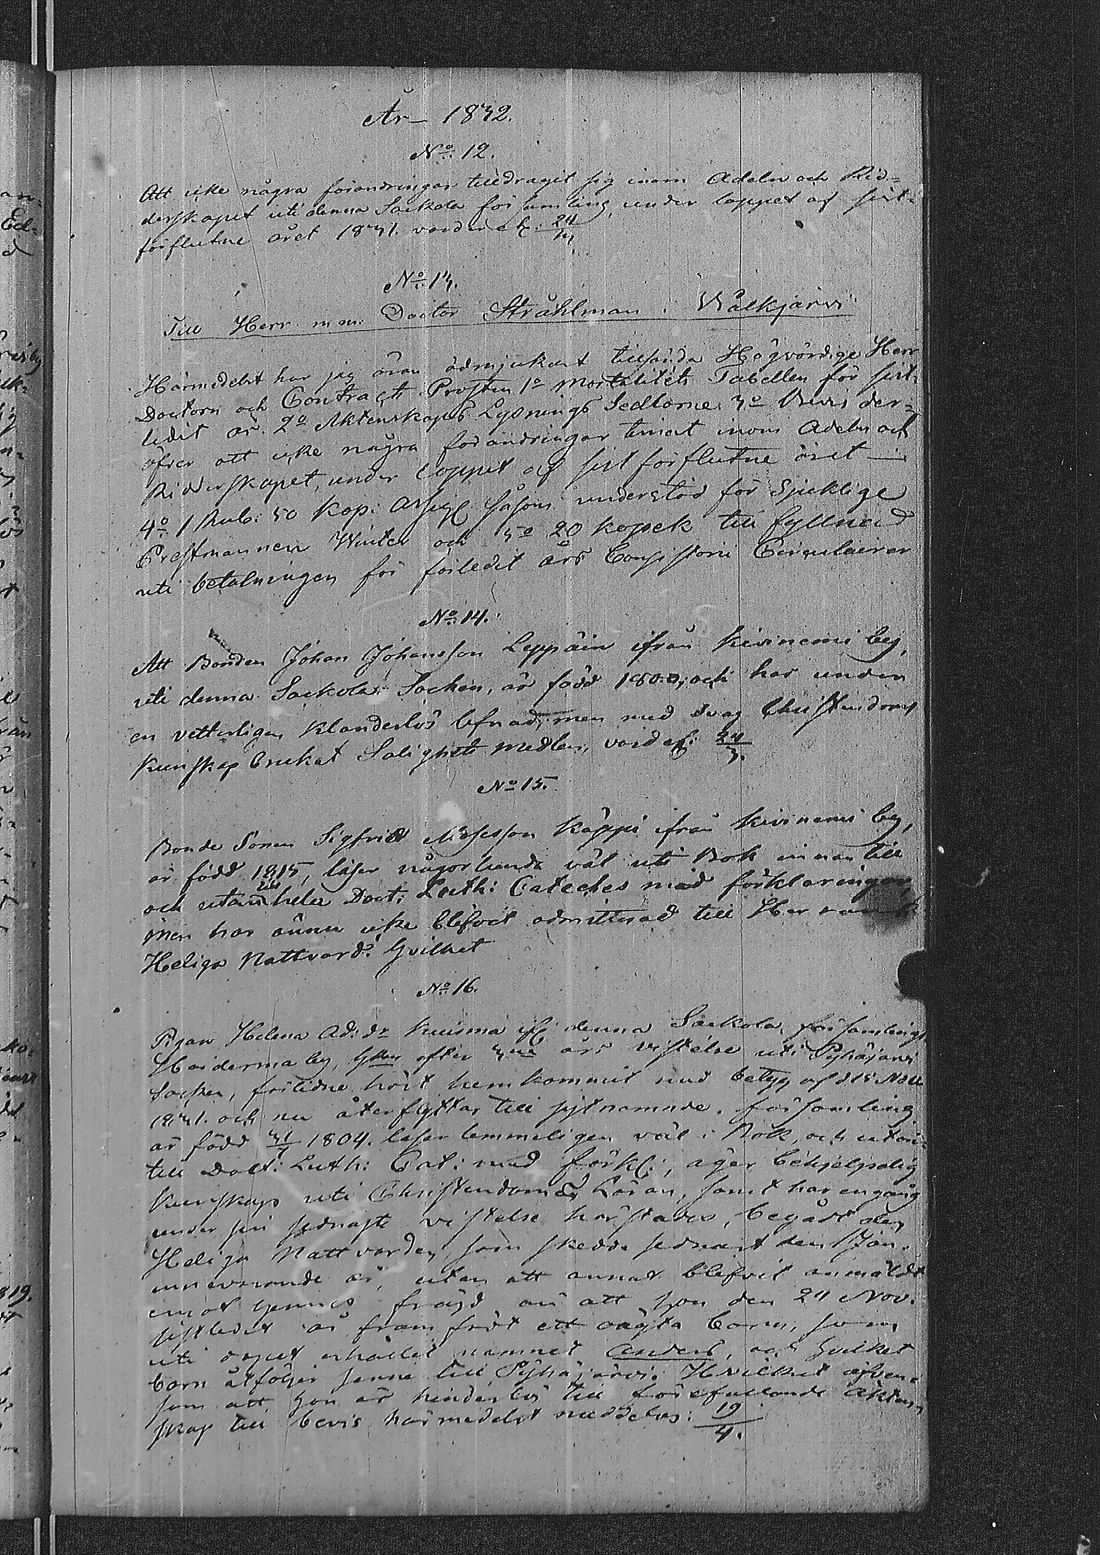 År 1832.
No: 12.
Att icke några förändringar tilldraget sig inom Adeln och Rid-
derskapet uti denna Sackola församling under loppet af sist-
förflutne året 1831. varder att: 24/3.
No: 13.
Till Herr m.m. Doctor Stråhlman. Walkjärvi
Härmedelst har jag äran ödmjukast tillsända Högvördige Herr
Doctorn och Contracts Prosten 1o Mortalitets Tabellen för sist-
ledit år. 2o Äktenskaps Lysnings Sedlarne. 3o Bevis der-
öfver att icke några förändringar timat inom Adeln och
Ridderskapet, under loppet af sist förflutne året —
4o 1 Rub: 50 Kop: såsom understöd för Sjuklige
Prestmannen Winter och 5o 20 kopek till fyllnad
uti betalningen för förledit års Consistorii Circulairer
No: 14.
Att Bonden Johan Johansson Leppäin ifrån Kivinemi by,
uti denna Sackola Socken, är född 1800, och har under
en vitterligen Klanderlös lefnad, men med svag Christendoms
Kunskap brukat Salighets medlen, vard: 24/3.
No: 15.
Bonde Sonen Sigfrid Köppi ifrån Kivinemi by,
är född 1815, läser någorlunda väl uti Bok innan till
och utan till hela Doct: Luth: Cateches med förklaringen,
men har ännu icke blifvit admitterad till Herrans
Heliga Nattvard. hvilket
No: 16.
Pigan Helena Ad:dr Kuisma ifr denna Sackola församlings
by, hvilken efter års vistelse uti Pyhäjärvi
Socken, förlidne höst hemkommit med betyg af d 15 Nov
1831. och nu återflyttar till sistnämnde församling
är född 31/7 1804. läser temmeligen väl i Bok, och utan-
till Doct: Luth: Cat: med förkl:, äger behjelpelig
Kunskap uti Christendoms Läran, samt har en gång
under sin sednaste vistelse härstädes, begådt den
Heliga Nattvarden, som skedde sednast den 1 Jan.
innevarande år, utan att annat blifvit anmäldt
emot hennes fräjd än att hon den 24 Nov.
sistledit år framfödt ett oägta barn, som
uti dopet erhållit namnet Anders, och hvilket
barn åtföljer henne till Pyhäjärvi. Hvilket äfven-
som att hon är hinderlös till förefallande Äkten-
skap till bevis härmedelst meddelas. 19/4.